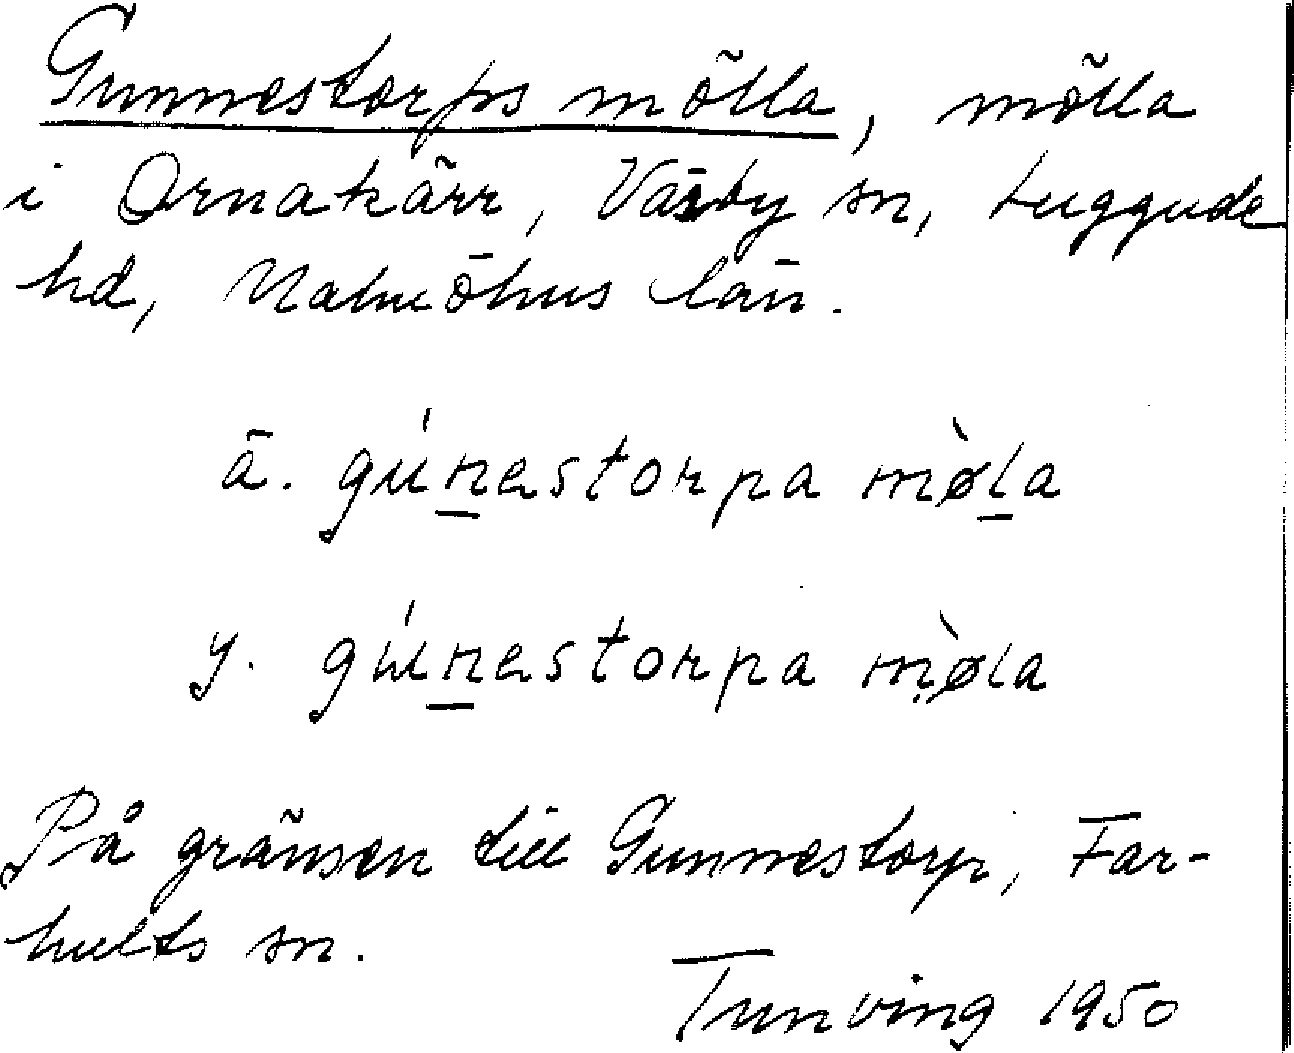 Gunnestorps mölla, mölla
i Ornakärr, Väsby sn, Luggude
hd, Malmöhus län.
ä. gúnestorpa mø̀la
y. gúnestorpa mø̀la
På gränsen till Gunnestorp, Far-
hults sn.
Tunving 1950